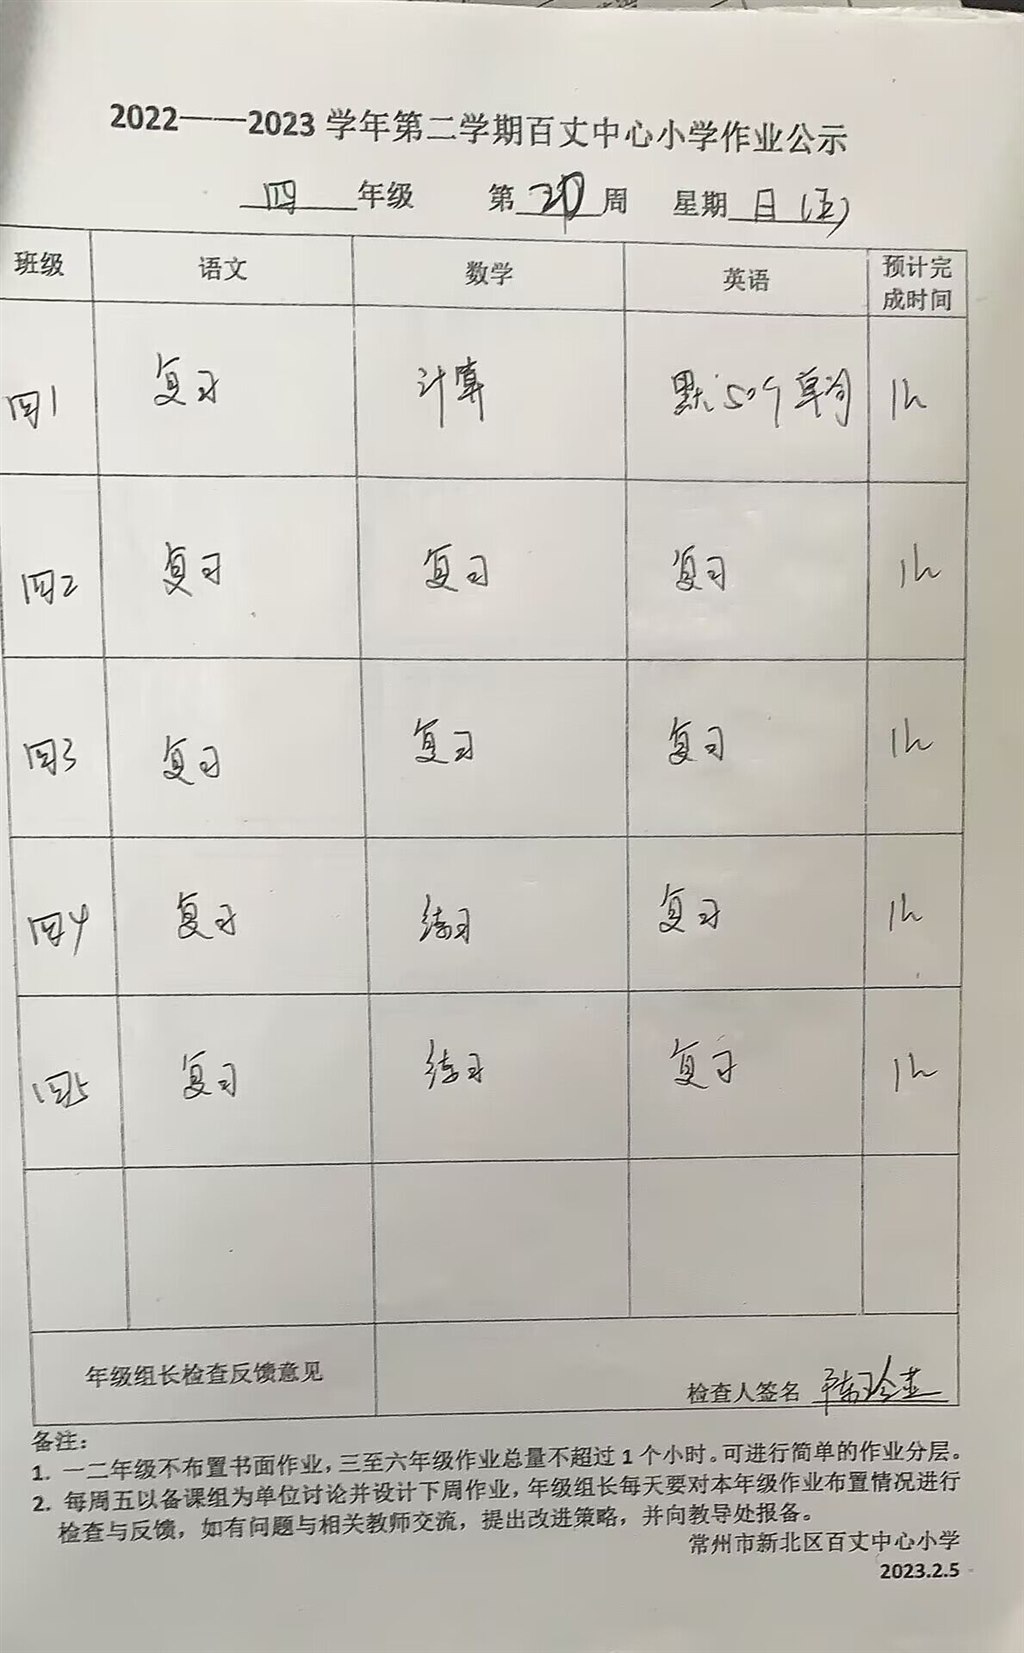 2022——2023 学年第二学期百丈中心小学作业公示
四 年级 第 20 周 星期 日（五）
班级 语文 数学 英语 预计完成时间
四1 复习 计算 默50个单词 1h
四2 复习 复习 复习 1h
四3 复习 复习 复习 1h
四4 复习 练习 复习 1h
四5 复习 练习 复习 1h
年级组长检查反馈意见
检查人签名
备注：
1. 一二年级不布置书面作业，三至六年级作业总量不超过 1 个小时。可进行简单的作业分层。
2. 每周五以备课组为单位讨论并设计下周作业，年级组长每天要对本年级作业布置情况进行
检查与反馈，如有问题与相关教师交流，提出改进策略，并向教导处报备。
常州市新北区百丈中心小学
2023.2.5